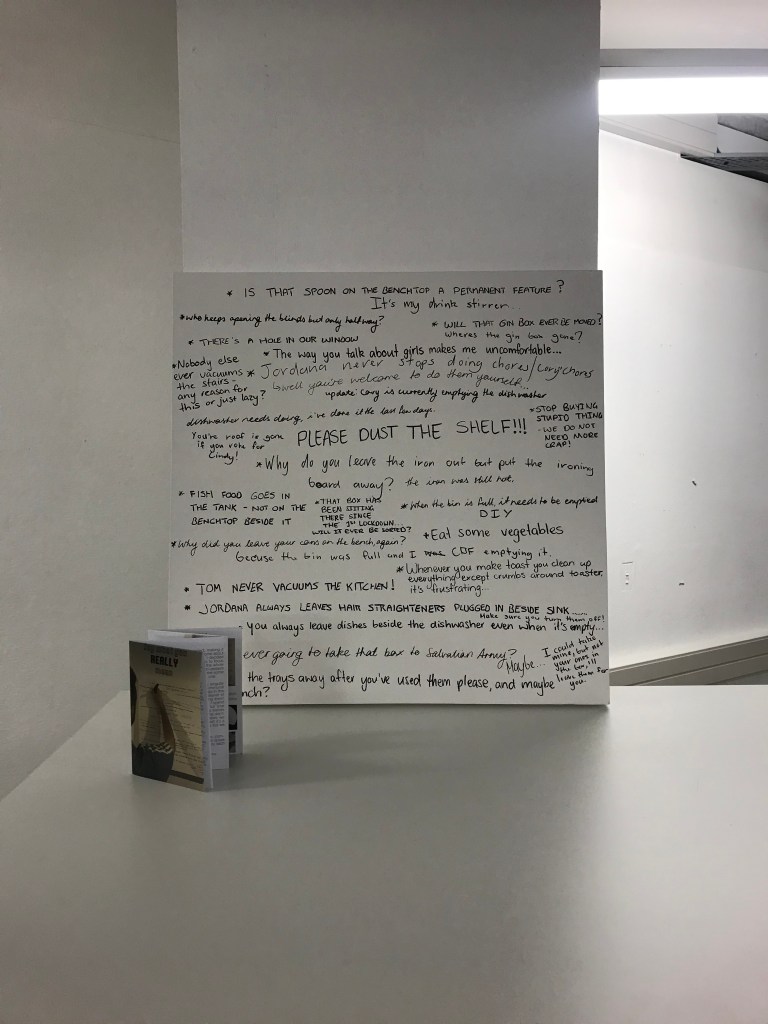 * IS THAT SPOON ON THE BENCHTOP A PERMANENT FEATURE?
It's my drink stirrer.
*who keeps opening the blinds but only halfway?
* WILL THAT GIN BOX EVER BE MOVED?
wheres the gin box gone?
* THERE'S A HOLE IN OUR WINDOW
* The way you talk about girls makes me uncomfortable...
*Nobody else
ever vacuums
the stairs -
any reason for
this or just lazy?
* Jordana never stops doing chores/Corychores
well you're welcome to do them yourself...
update: Cory is currently emptying the dishwasher
dishwasher needs doing, i've done it the last few days.
*STOP BUYING
STUPID THING
- WE DO NOT
NEED MORE
CRAP!
You're roof is gone
if you vote for
Cindy!
PLEASE DUST THE SHELF!!!
*Why do you leave the iron out but put the ironing
board away? the iron was still hot.
* FISH FOOD GOES IN
THE TANK - NOT ON THE
BENCHTOP BESIDE IT
*THAT BOX HAS
BEEN SITTING
THERE SINCE
THE 1st LOCKDOWN...
WILL IT EVER BE SORTED?
*when the bin is full, it needs to be emptied
DIY
*Why did you leave your cans on the bench, again?
becuse the bin was full and I was CBF emptying it.
*Eat some vegetables
*Whenever you make toast you clean up
everything except crumbs around toaster.
it's frustrating...
* TOM NEVER VACUUMS THE KITCHEN!
* JORDANA ALWAYS LEAVES HAIR STRAIGHTENERS PLUGGED IN BESIDE SINK......
Make sure you turn them off!
- you always leave dishes beside the dishwasher even when it's empty...
ever going to take that box to Salvation Army?
Maybe...
I could take
mine, but not
your ones in
the bin, i'll
leave them for
you.
the trays away after you've used them please, and maybe
nch?
REALLY